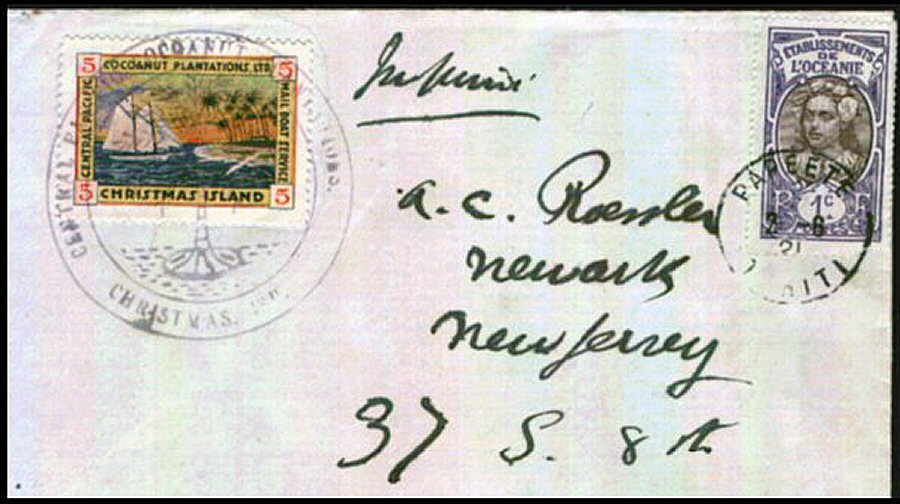 5 COCOANUT PLANTATIONS LTD. 5
CENTRAL PACIFIC
MAIL BOAT SERVICE
5 CHRISTMAS ISLAND 5
COCOANUT
CENTRAL
CHRISTMAS
Imprimé
ETABLISSEMENTS
DE
L'OCEANIE
1c
PAPEETE
2-6
21
a.c. Roessler
newark
new Jersey
37 S. 8th